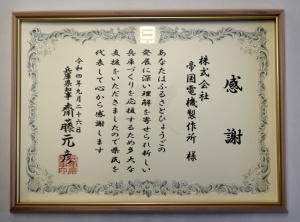 感謝
株式会社
帝国電機製作所 様
あなたはふるさとひょうごの
発展に深い理解を寄せられ新しい
兵庫づくりを応援するため多大な
支援をいただきましたので県民を
代表して心から感謝します
令和四年九月二十六日
兵庫県知事 齋藤元彦